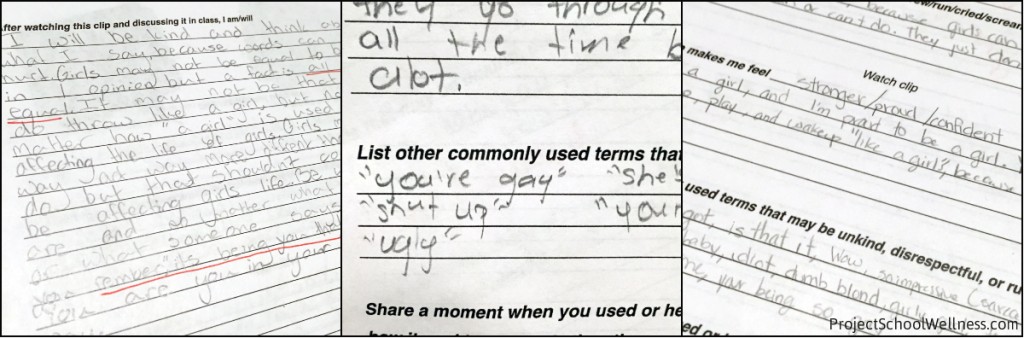 fter watching this clip and discussing it in class, I am/will
I will be kind and think
what I say because words can
hurt. Girls may not be equal to
in I opinion but a fact is all
equal. It may not be that
do throw like a girl, but
matter how "a girl" is used
affecting the life of girls. Girls
way and way more different
do but that shouldn't
be affecting girls life. Be
are and no matter what
or what someone says
remember its being you
you are you in your
they go through
all the time
alot.
List other commonly used terms tha
"you're gay" "She
"shut up" "your
"ugly"
Share a moment when you used or he
w/run/cried/screa
because girls can
or can't do. They just
makes me feel stronger/proud/confident
Watch clip
a girl, and I'm proud to be a girl.
play, and wakeup "like a girl", because
used terms that may be unkind, disrespectful, or ru
Is that it, Wow, so impressive
baby, idiot, dumb blond, girly
your being so
ed or
ProjectSchoolWellness.com